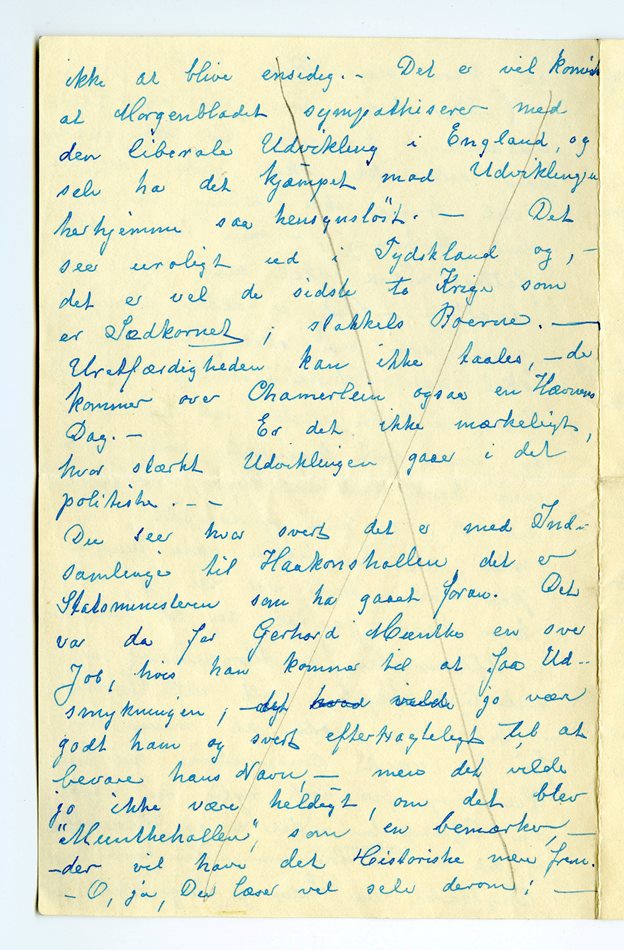 ikke at blive ensidig. - Det er vel
at Morgenbladet sympathiserer med
den liberale Udvikling i England, og
selv ha det kjæmpet mod Udviklingen
herhjemme saa hensynsløst. - Det
seer uroligt ud i Tydskland og, -
det er vel de sidste to Krige som
er Sædkornet, stakkels Boerne. -
Uretfærdigheden kan ikke taales, - de
kommer over Chamerlein ogsaa en Hævnens
Dag. - Er det ikke mærkeligt,
hvor stærkt Udviklingen gaar i det
politiske. - -
Du seer hvor svert det er med Ind-
samlinge til Haakonshallen, det er
Statsministeren som ha gaaet foran. Det
var da for Gerhard Munthe en svær
Job, hvis han kommer til at faa Ud-
smykningen, - det hvad vilde jo være
godt ham og svert eftertragteligt til at
bevare hans Navn, - men det vilde
jo ikke være heldigt, om det blev
"Munthehallen", som en bemærker, -
- der vil have det Historiske mere frem.
- O, ja, Du læser vel selv derom; -